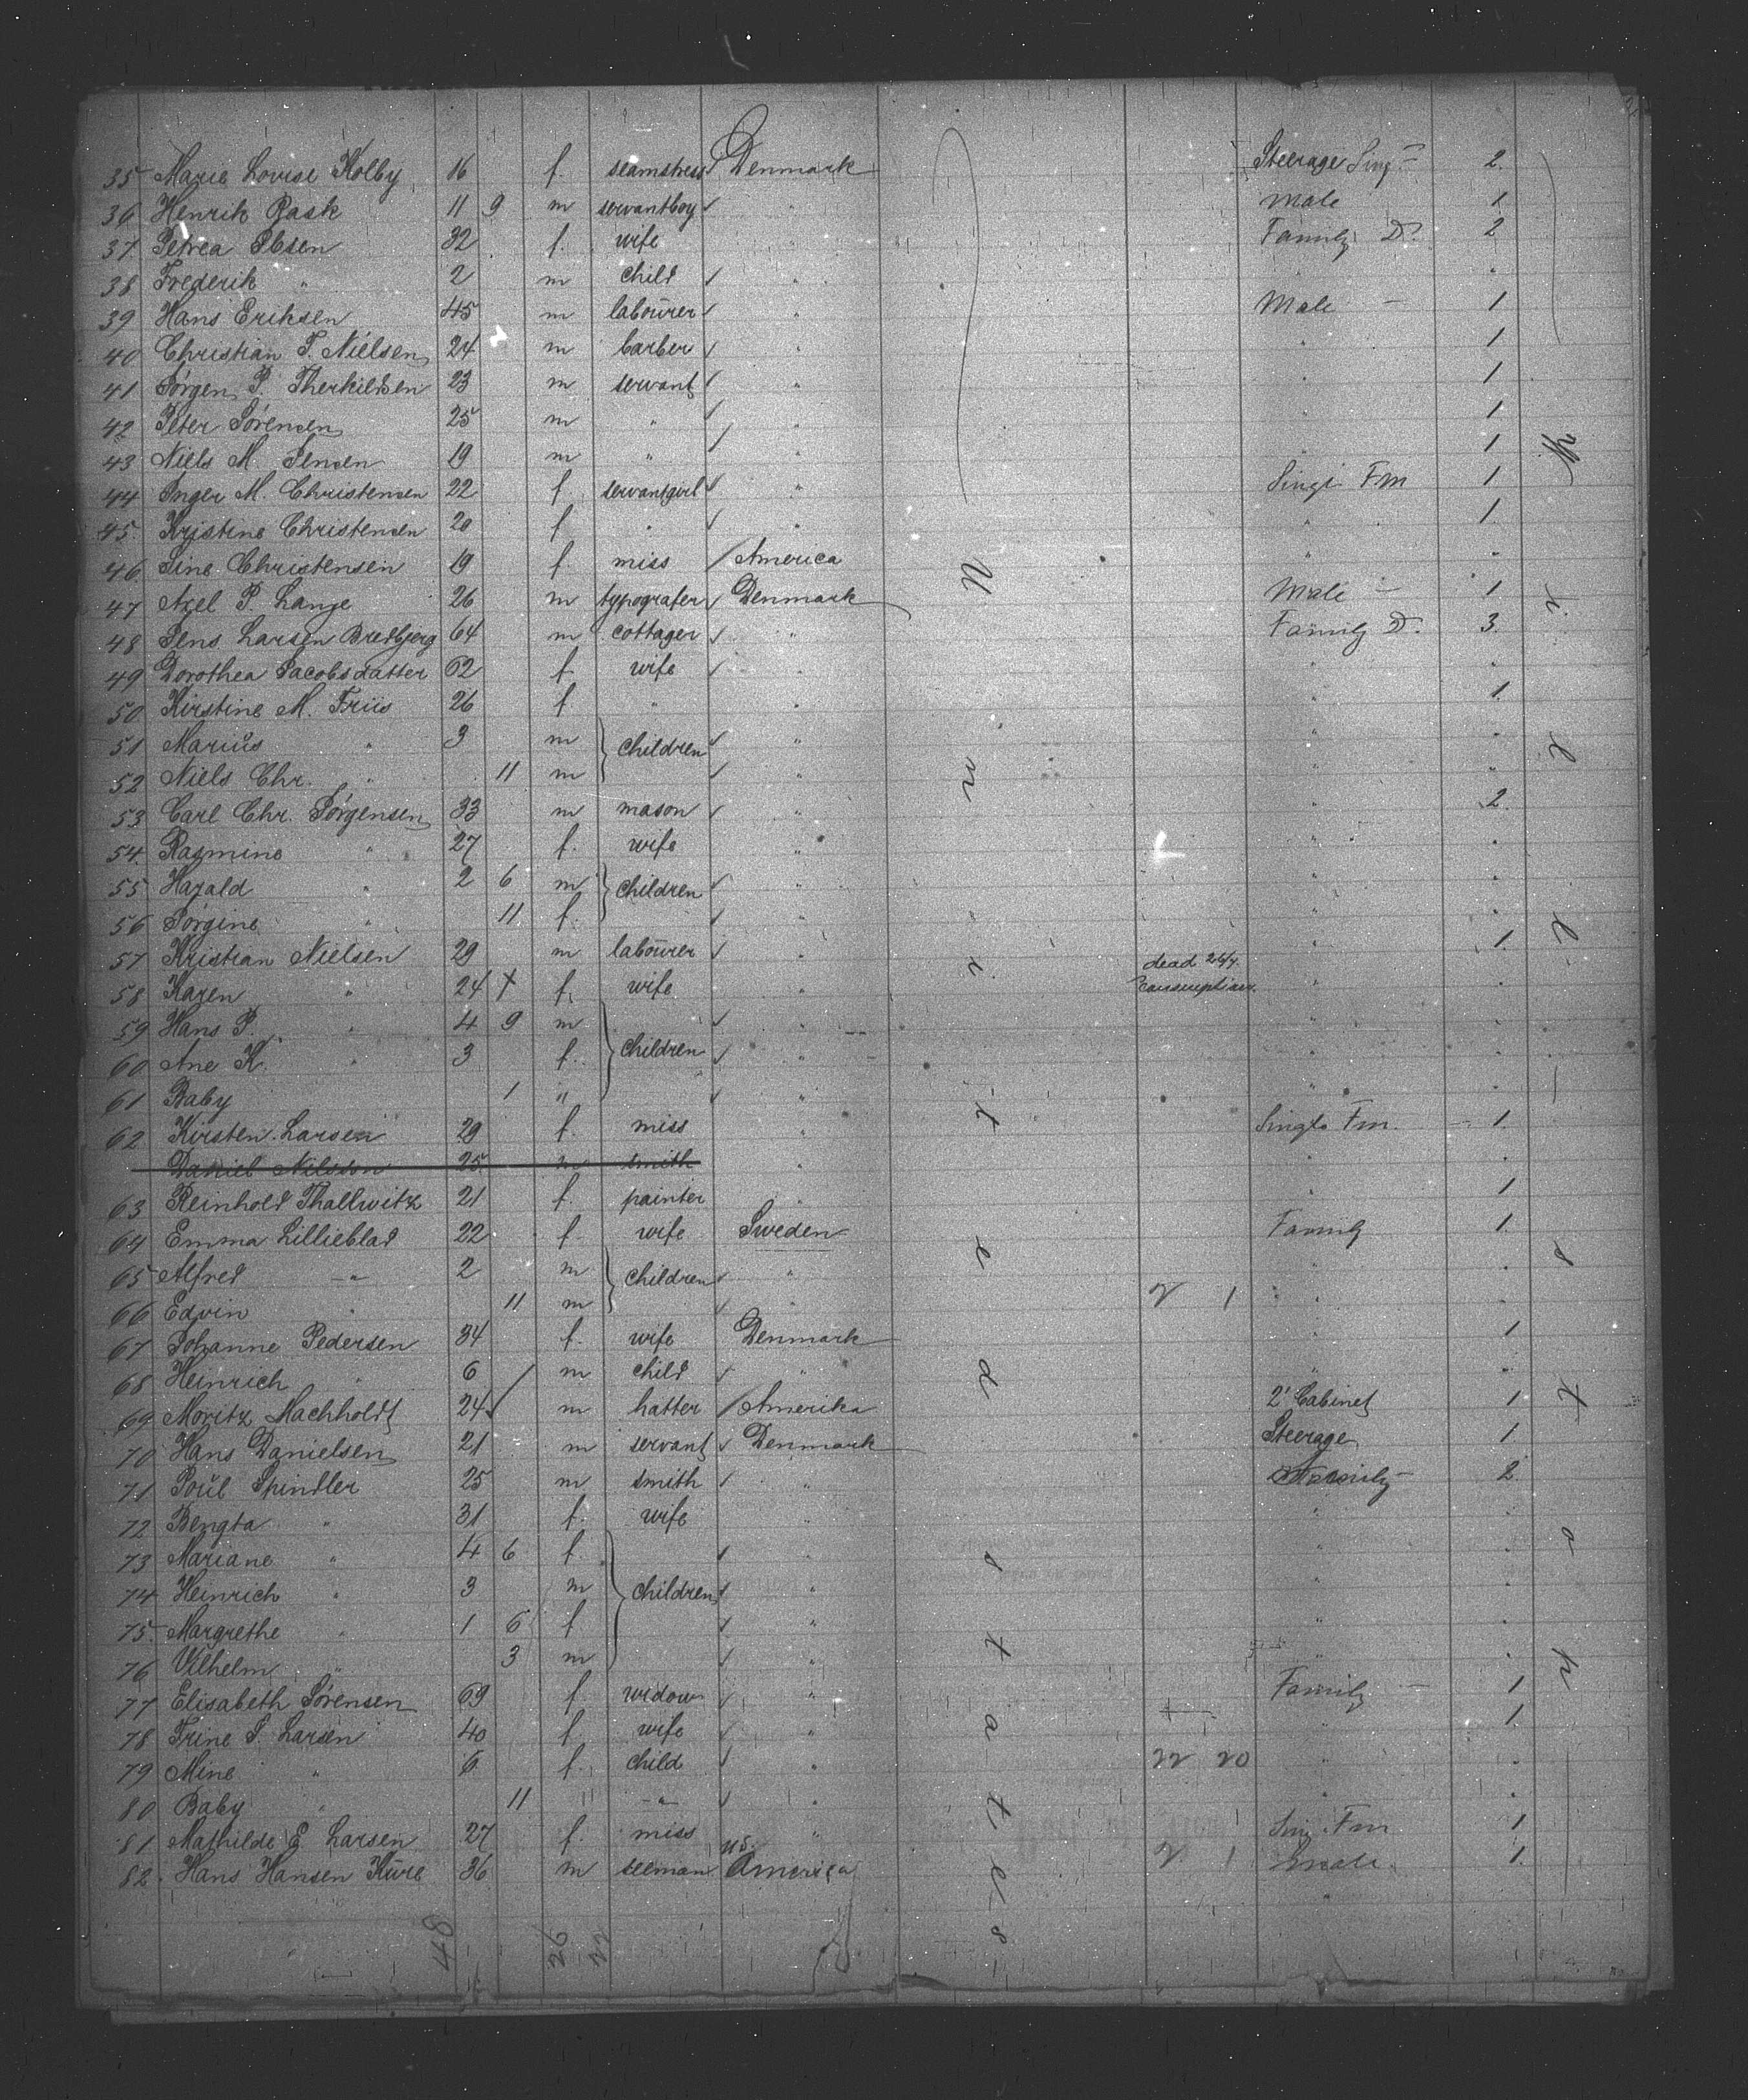 35 Marie Lovise Kolby 16 f. seamstress Denmark Steerage Sing 2.
36 Henrik Rask 11 9 m servantboy " male 1
37 Petrea Ibsen 32 f. wife " Family D. 2
38 Frederik " 2 m child " " "
39 Hans Eriksen 45 m laboürer " Male — 1
40 Christian J. Nielsen 24 m barber " " 1
41 Jørgen P. Therkildsen 23 m servant " " 1
42 Peter Sørensen 25 m " " " 1
43 Niels M. Jensen 19 m " " " 1
44 Inger M. Christensen 22 f. servantgirl " Singl Fm 1
45 Kristine Christensen 20 f " " " 1.
46 Sine Christensen 19 f miss America " "
47 Axel P. Lange 26 m typografer Denmark Male — 1
48 Jens Larsen Bredbjerg 64 m cottager " Family D. 3.
49 Dorothea Jacobsdatter 62 f. wife " " "
50 Kirstine M. Friis 26 f " " " 1.
51 Mariüs " 3 m children " " "
52 Niels Chr. " 11 m " " "
53 Carl Chr. Jørgensen 33 m mason " " 2.
54 Rasmine " 27 f. wife " " "
55 Harald " 2 6 m children " " "
56 Jørgine " 11 f. " " "
57 Kristian Nielsen 29 m laboürer " dead 26/4. " 1.
58 Karen " 24 + f. wife " consumption. " "
59 Hans P. " 4 9 m " " "
60 Ane K. " 3 f. children " " "
61 Baby 1 " " " "
62 Kirsten Larsen 29 f. miss " Single Fm. 1.
Daniel Nilsson 25 m smith " " "
63 Reinhold Thallwitz 21 f. painter " " 1
64 Emma Lillieblad 22 f. wife Sweden Family 1.
65 Alfred —"— 2 m children " " "
66 Edvin " 11 m " 2 1 " "
67 Johanne Pedersen 34 f. wife Denmark " 1
68 Heinrich " 6 m child " " "
69 Moritz Machholdt 24 m hatter Amerika 2' Cabinet 1
70 Hans Danielsen 21 m servant Denmark Steerage 1
71 Poül Spindler 25 m smith " Family — 2.
72 Bengta " 31 f. wife " " "
73 Mariane " 4 6 f. " " "
74 Heinrich " 3 m children " " "
75 Margrethe " 1 6 f " " "
76 Vilhelm " 3 m " " "
77 Elisabeth Sørensen 69 f. widow " Family — 1
78 Trine J. Larsen 40 f. wife " " 1.
79 Mine " 6 f. child " 22 20 " "
80 Baby " 11 " —"— " " "
81 Mathilde E. Larsen 27 f. miss " Sing. Fm 1
82. Hans Hansen Küre 36 m seeman U.S. America 2 1 male 1.
United states
48 26 22